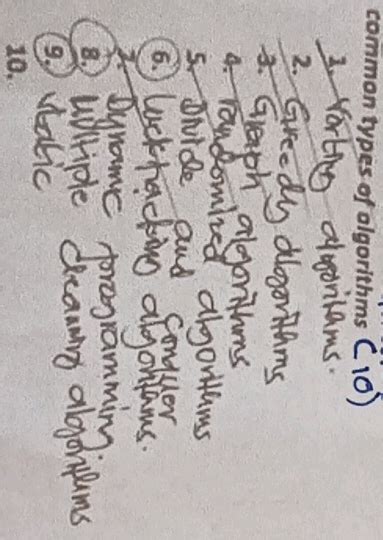 common types of algorithms (10)
1. Sorting algorithms.
2. Greedy algorithms
3. Graph algorithms
4. Randomized algorithms
5. Divide and Conquor
6. Backtracking algorithms.
7. Dynamic programming
8. Multiple learning algorithms
9. static
10.